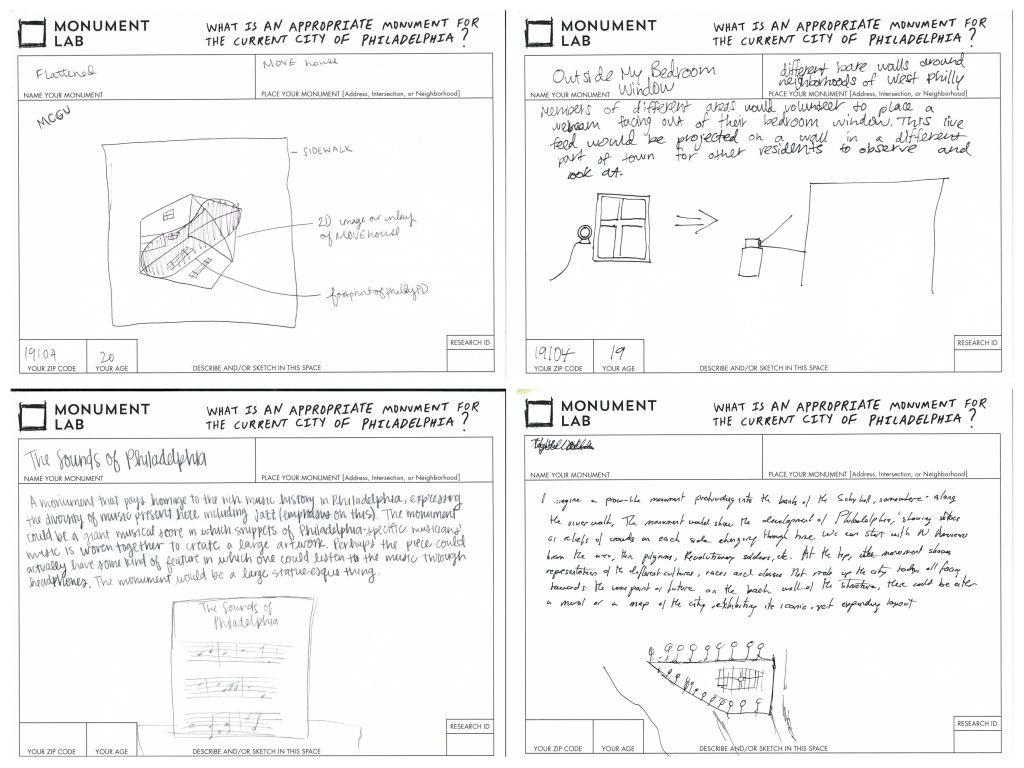 MONUMENT LAB
WHAT IS AN APPROPRIATE MONUMENT FOR
THE CURRENT CITY OF PHILADELPHIA?
Flattened
MOVE house
NAME YOUR MONUMENT
PLACE YOUR MONUMENT [Address, Intersection, or Neighborhood]
SIDEWALK
2D image or inlay
of MOVE house
footprint of philly PD
20
YOUR ZIP CODE
YOUR AGE
DESCRIBE AND/OR SKETCH IN THIS SPACE
RESEARCH ID
MONUMENT LAB
WHAT IS AN APPROPRIATE MONUMENT FOR
THE CURRENT CITY OF PHILADELPHIA?
Outside My Bedroom
Window
different bare walls around
neighborhoods of West Philly
NAME YOUR MONUMENT
PLACE YOUR MONUMENT [Address, Intersection, or Neighborhood]
Members of different areas would volunteer to place a
webcam facing out of their bedroom window. This live
feed would be projected on a wall in a different
part of town for other residents to observe and
look at.
19104
19
YOUR ZIP CODE
YOUR AGE
DESCRIBE AND/OR SKETCH IN THIS SPACE
RESEARCH ID
MONUMENT LAB
WHAT IS AN APPROPRIATE MONUMENT FOR
THE CURRENT CITY OF PHILADELPHIA?
The Sounds of Philadelphia
NAME YOUR MONUMENT
PLACE YOUR MONUMENT [Address, Intersection, or Neighborhood]
A monument that pays homage to the rich music history in Philadelphia, expressing
the diversity of music present here including Jazz (emphasis on this). The monument
could be a giant musical score in which snippets of Philadelphia-specific musicians'
music is woven together to create a large artwork. Perhaps the piece could
actually have some kind of feature in which one could listen to the music through
headphones. The monument would be a large statue-esque thing.
The Sounds of
Philadelphia
YOUR ZIP CODE
YOUR AGE
DESCRIBE AND/OR SKETCH IN THIS SPACE
RESEARCH ID
MONUMENT LAB
WHAT IS AN APPROPRIATE MONUMENT FOR
THE CURRENT CITY OF PHILADELPHIA?
NAME YOUR MONUMENT
PLACE YOUR MONUMENT [Address, Intersection, or Neighborhood]
I imagine a prow-like monument protruding into the bank of the, somewhere along
the river walk, The monument would show the development of Philadelphia, showing
as reliefs of crowds on each side changing through time. We can start with N Americans
from the area, then pilgrims, Revolutionary soldiers, etc. At the tip, the monument shows
representations of the different cultures, races and classes that make up the city today, all facing
towards the same point or future on the back wall of the structure, there could be either
a mural or a map of the city, exhibiting its iconic, yet expanding layout
YOUR ZIP CODE
YOUR AGE
DESCRIBE AND/OR SKETCH IN THIS SPACE
RESEARCH ID